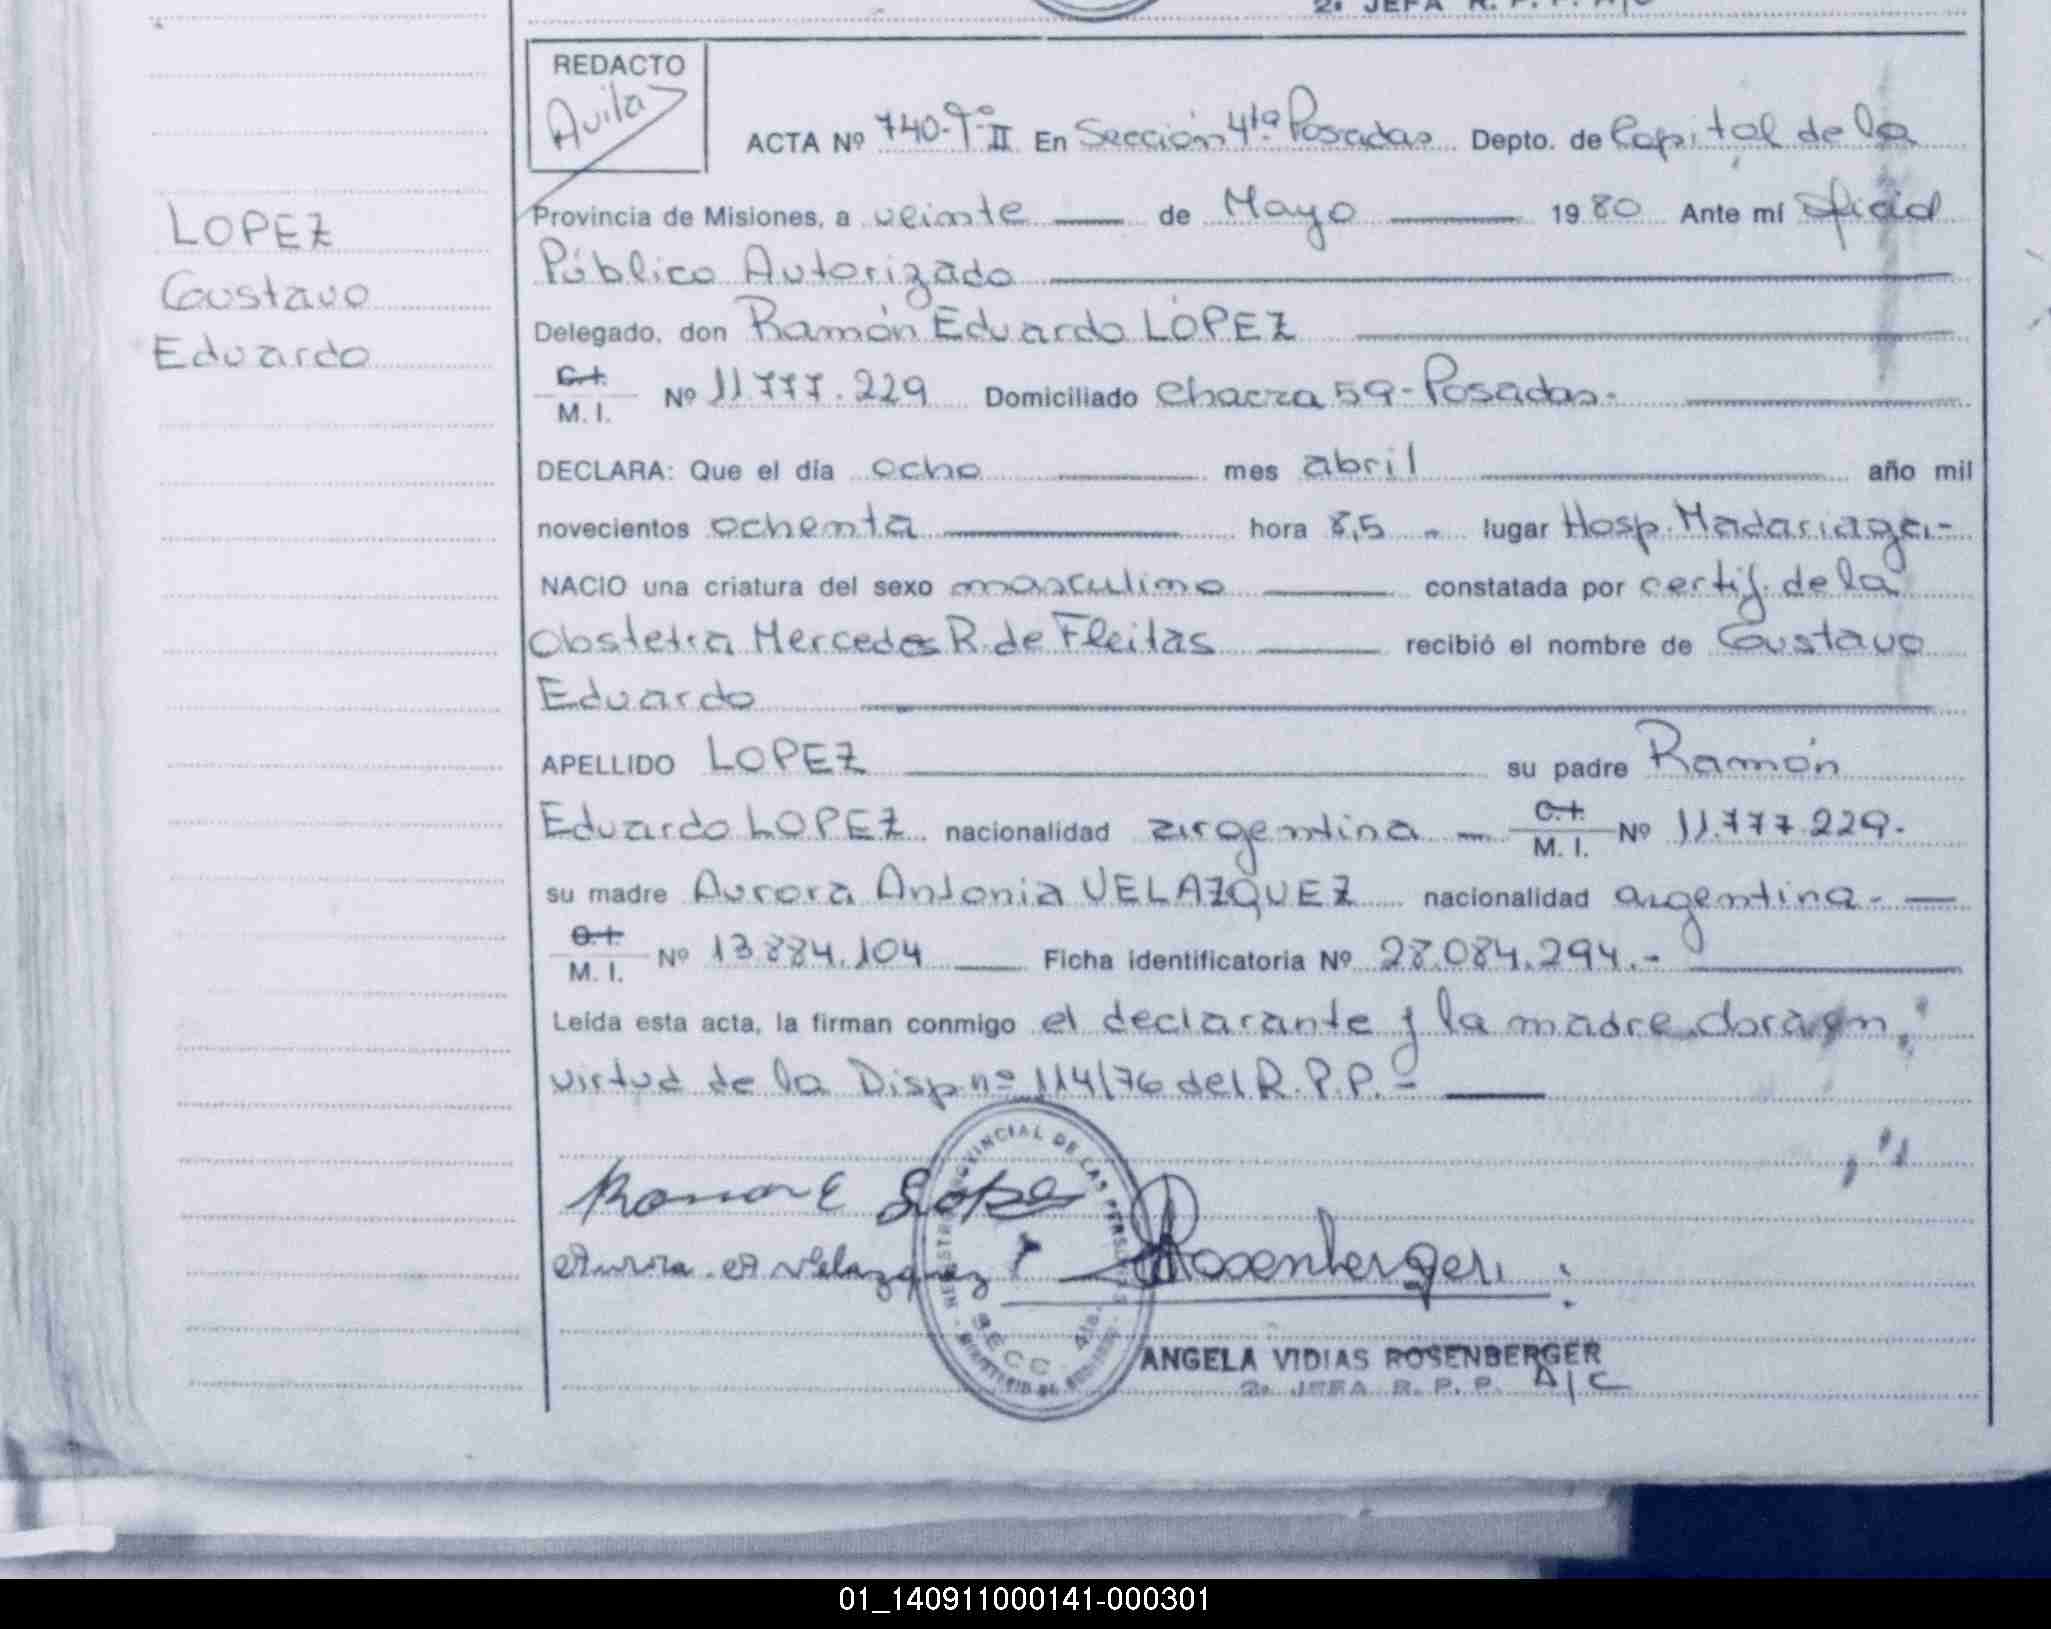 2º JEFA R. P. P. A/C
REDACTO
Avila
ACTA Nº 740-Tº II En Sección 4ta Posadas Depto. de Capital de la
LOPEZ
Gustavo
Eduardo
Provincia de Misiones, a veinte de Mayo 1980 Ante mí Oficial
Público Autorizado
Delegado, don Ramón Eduardo LOPEZ
C.I.
M. I. Nº 11.777.229 Domiciliado Chacra 59-Posadas.
DECLARA: Que el día ocho mes abril año mil
novecientos ochenta hora 8,5 - lugar Hosp. Madariaga.-
NACIO una criatura del sexo masculino constatada por certif. de la
Obstetra Mercedes R. de Fleitas recibió el nombre de Gustavo
Eduardo
APELLIDO LOPEZ su padre Ramón
Eduardo LOPEZ nacionalidad argentina C.I. M. I. Nº 11.777.229.
su madre Aurora Antonia VELAZQUEZ nacionalidad argentina.
C.I.
M. I. Nº 13.884.104 Ficha identificatoria Nº 28.084.294.-
Leída esta acta, la firman conmigo el declarante y la madre
virtud de la Disp. nº 114/76 del R.P.P.-
Ramon E Lopez
Aurora A Velazquez Rosenberger
PROVINCIAL DE LAS PERSONAS
SECC. 4ta.
ANGELA VIDIAS ROSENBERGER
2º JEFA R. P. P. A/C
01_140911000141-000301